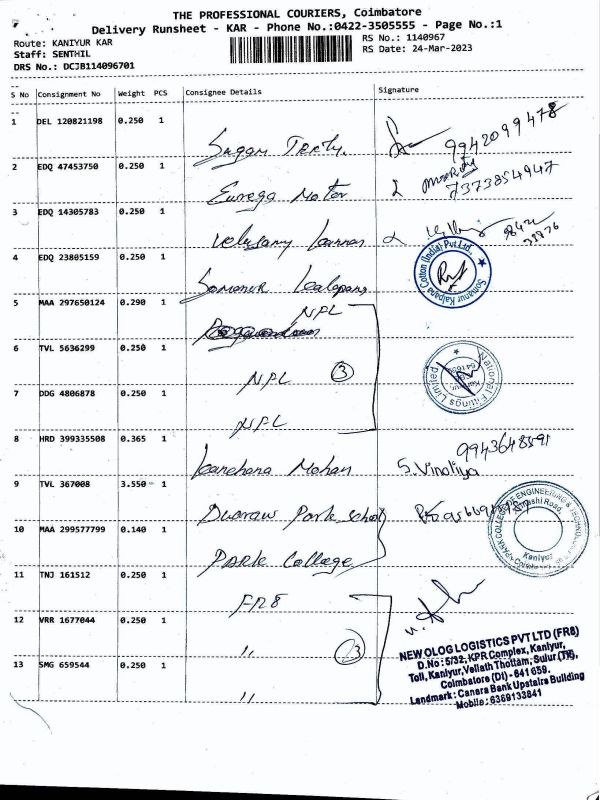 THE PROFESSIONAL COURIERS, Coimbatore
Delivery Runsheet - KAR - Phone No.:0422-3505555 - Page No.:1
Route: KANIYUR KAR
RS No.: 1140967
Staff: SENTHIL
RS Date: 24-Mar-2023
DRS No.: DCJB114096701
S No Consignment No Weight PCS Consignee Details Signature
1 DEL 120821198 0.250 1
9942099478
2 EDQ 47453750 0.250 1 Eurega Motor
7373854947
3 EDQ 14305783 0.250 1
4 EDQ 23805159 0.250 1 Somanur Kalapana
Somanur Kalpana Cotton (India) Pvt.Ltd.,
5 MAA 297650124 0.290 1 NPL
6 TVL 5636299 0.250 1 NPL 3
National Fittings Limited
7 DDG 4806878 0.250 1 NPL
8 HRD 399335508 0.365 1 Kanchana Mohan S. Vinoliya
9943648591
9 TVL 367008 3.550 1 Park School
10 MAA 299577799 0.140 1 Park College
Kaniyur
11 TNJ 161512 0.250 1 FR8
12 VRR 1677044 0.250 1 " 3
13 SMG 659544 0.250 1 "
NEW OLOG LOGISTICS PVT LTD (FR8)
D.No : 5/32, KPR Complex, Kaniyur,
Toll, Kaniyur, Vellath Thottam, Sulur (TK),
Coimbatore (DI) - 641 659.
Landmark : Canara Bank Upstairs Building
Mobile : 6369133841